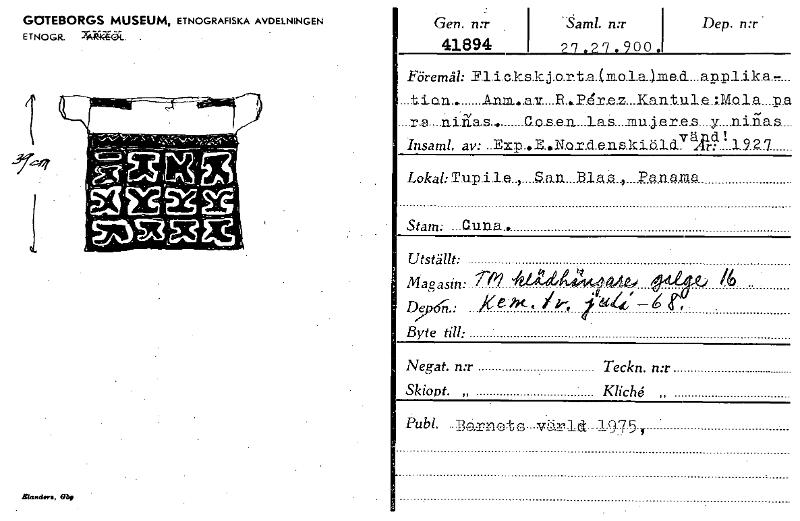 GÖTEBORGS MUSEUM, ETNOGRAFISKA AVDELNINGEN
ETNOGR. ARKEOL.
39 cm
Elanders, Gbg
Gen. n:r Saml. n:r Dep. n:r
41894 27.27.900.
Föremål: Flickskjorta(mola)med applika-
tion. Anm.av R.Pérez Kantule:Mola pa
ra niñas. Cosen las mujeres y niñas
vänd!
Insaml. av: Exp.E.Nordenskiöld År: 1927
Lokal: Tupile, San Blas, Panama
Stam: Cuna.
Utställt:
Magasin: TM klädhängare galge 16
Depon.: Kem. tv. juli -68.
Byte till:
Negat. n:r Teckn. n:r
Skiopt. „ Kliché „
Publ. Barnets värld 1975,